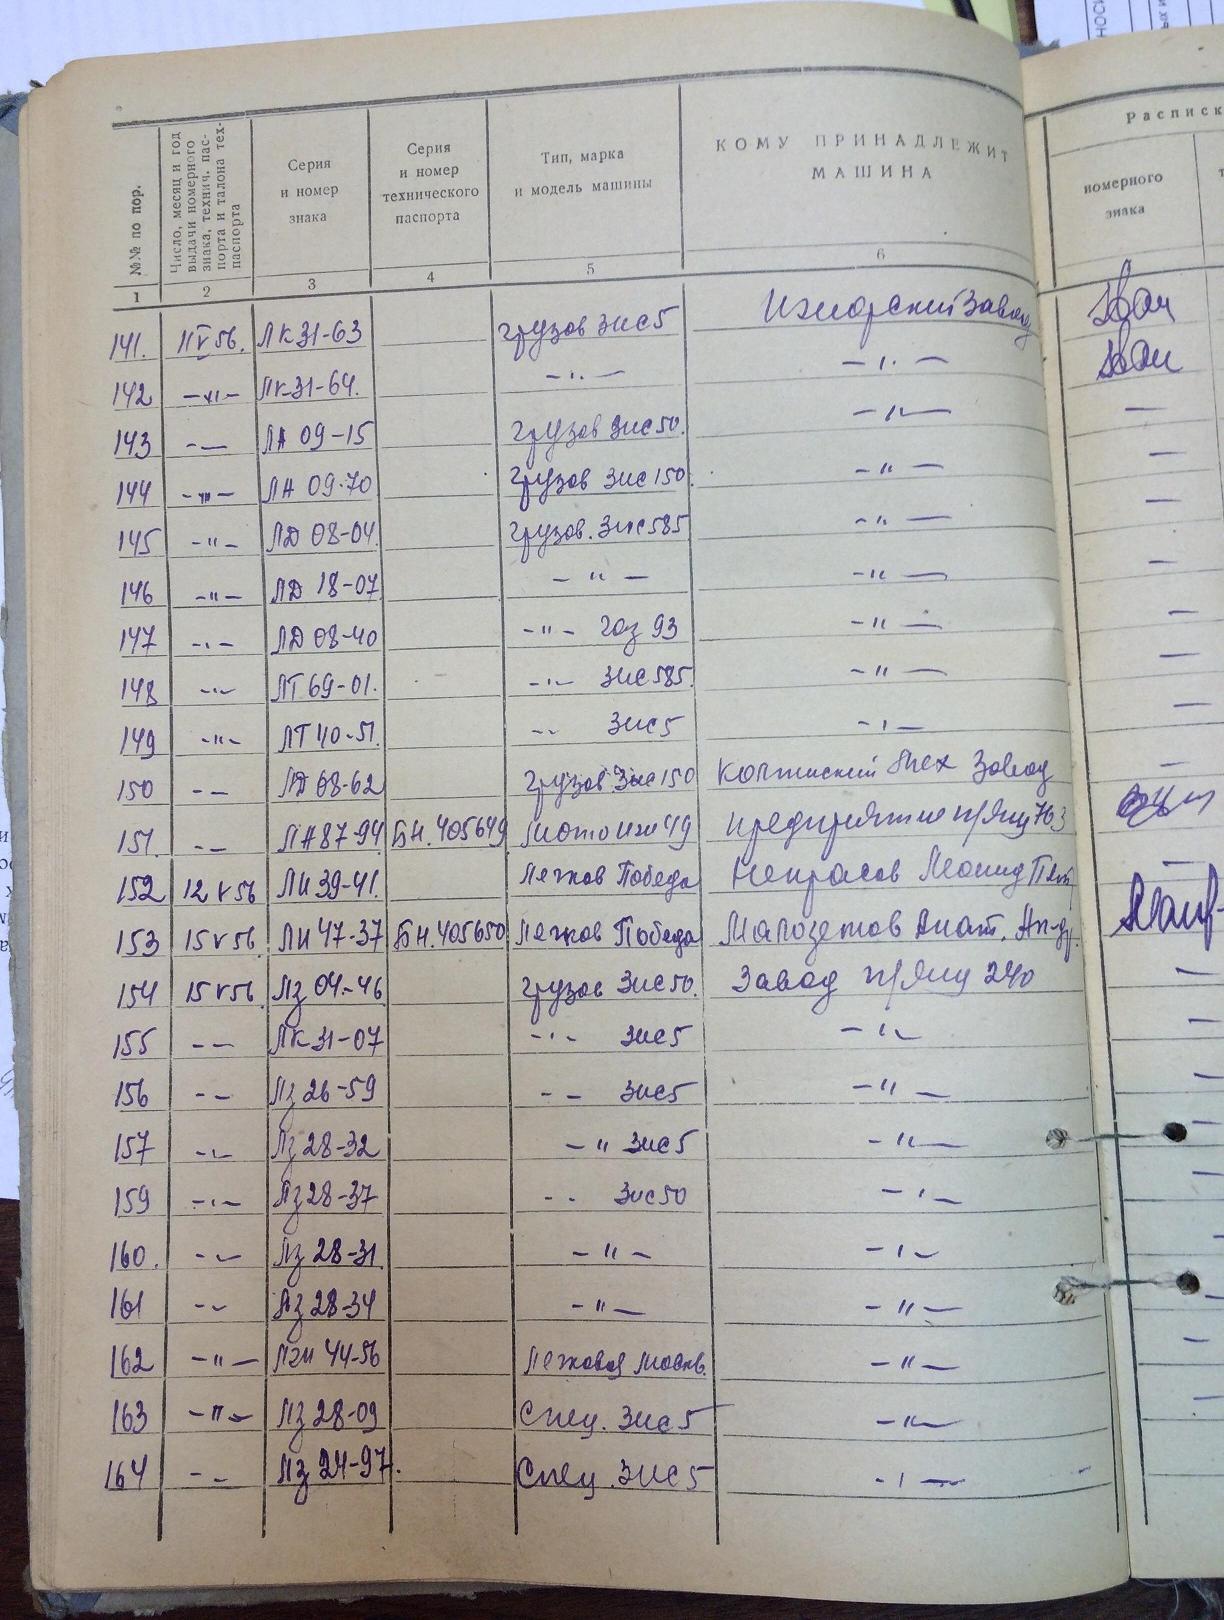 №№ по пор.
Число, месяц и год
выдачи номерного
знака, технич. пас-
порта и талона тех-
паспорта
Серия
и номер
знака
Серия
и номер
технического
паспорта
Тип, марка
и модель машины
КОМУ ПРИНАДЛЕЖИТ
МАШИНА
Расписк
номерного
знака
1 2 3 4 5 6
141. 11 V 56. ЛК 31-63 грузов ЗИС 5 Ижорский Завод
142 -"- ЛК-31-64. -"- -"-
143 -- ЛА 09-15 грузов ЗИС 50. -"-
144 -"- ЛА 09-70 грузов ЗИС 150. -"-
145 -"- ЛД 08-04. грузов. ЗИС 585 -"-
146 -"- ЛД 18-07 -"- -"-
147 -"- ЛД 08-40 -"- Газ 93 -"-
148 -"- ЛТ 69-01. -"- ЗИС 585. -"-
149 -"- ЛТ 40-51. -- ЗИС 5 -"-
150 -- ЛД 08-62 грузов. ЗИС 150 Колпинский Мех Завод
151. -- ЛА 87-94 БН. 405649 Мото Иж 49 предприятие п/ящ 763
152 12 V 56 ЛИ 39-41. Легков Победа Некрасов Леонид
153 15 V 56. ЛИ 47-37 БН. 405650 Легков Победа Малоземов Анат.
154 15 V 56. ЛЗ 04-46 грузов ЗИС 50. Завод п/ящ 240
155 -- ЛК 31-07 -"- ЗИС 5 -"-
156 -- ЛЗ 26-59 -- ЗИС 5 -"-
157 -- ЛЗ 28-32 -" ЗИС 5 -"-
159 -"- ЛЗ 28-37 -- ЗИС 50 -"-
160. -- ЛЗ 28-31. -"- -"-
161 -- ЛЗ 28-34 -"- -"-
162 -"- 44-56 Легковая Москв. -"-
163 -"- ЛЗ 28-09 Спец. ЗИС 5 -"-
164 -- ЛЗ 24-97. Спец. ЗИС 5 -"-